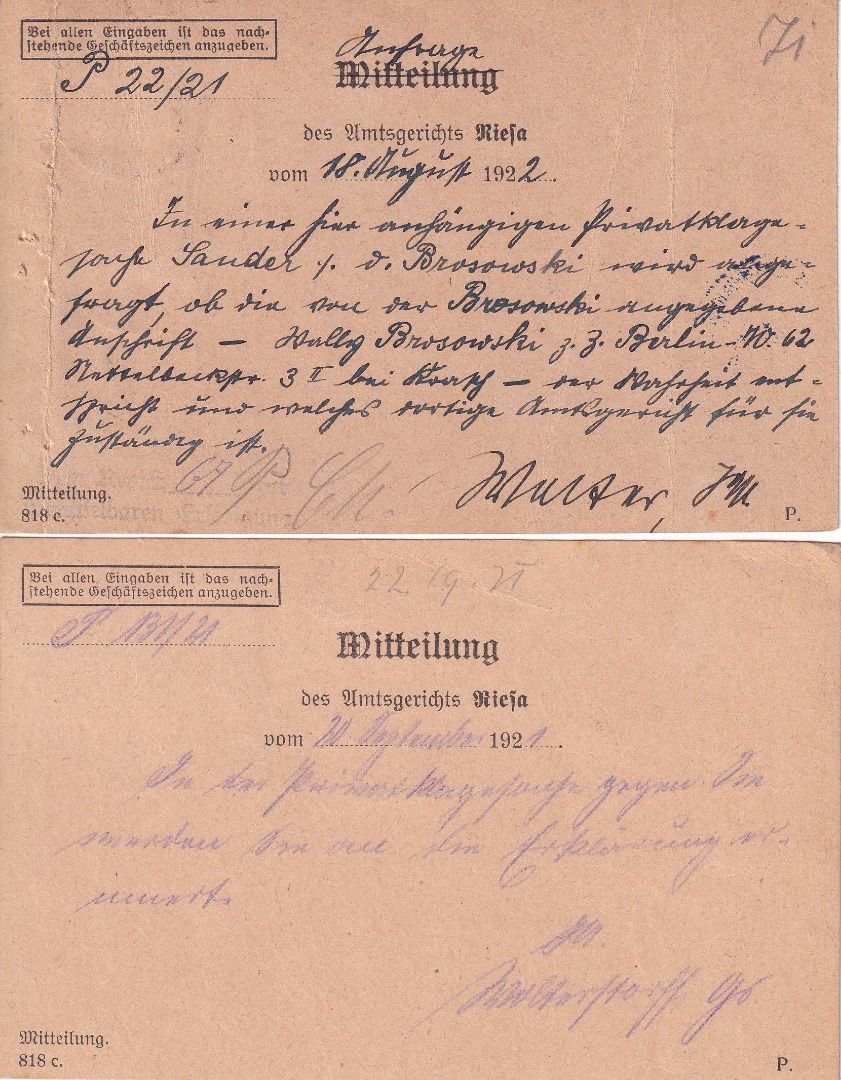 Bei allen Eingaben ist das nach-
stehende Geschäftszeichen anzugeben.
P 22/21
Anfrage
Mitteilung
des Amtsgerichts Riesa
vom 18. August 1922.
In einer hier anhängigen Privatklage-
sache Sander ./. d. Brosowski wird ange-
fragt, ob die von der Brosowski angegebene
Anschrift – Wally Brosowski z. Z. Berlin W. 62
Nettelbeckstr. 3 II bei Krasch – der Wahrheit ent-
spricht und welches dortige Amtsgericht für sie
zuständig ist.
67
Walter,
Mitteilung.
818 c.
P.
Bei allen Eingaben ist das nach-
stehende Geschäftszeichen anzugeben.
22/9 21
P
Mitteilung
des Amtsgerichts Riesa
vom 20 September 1921.
In der Privatklagesache gegen Sie
werden Sie an die Erklärung er-
innert.
Wolterstorff
Mitteilung.
818 c.
P.